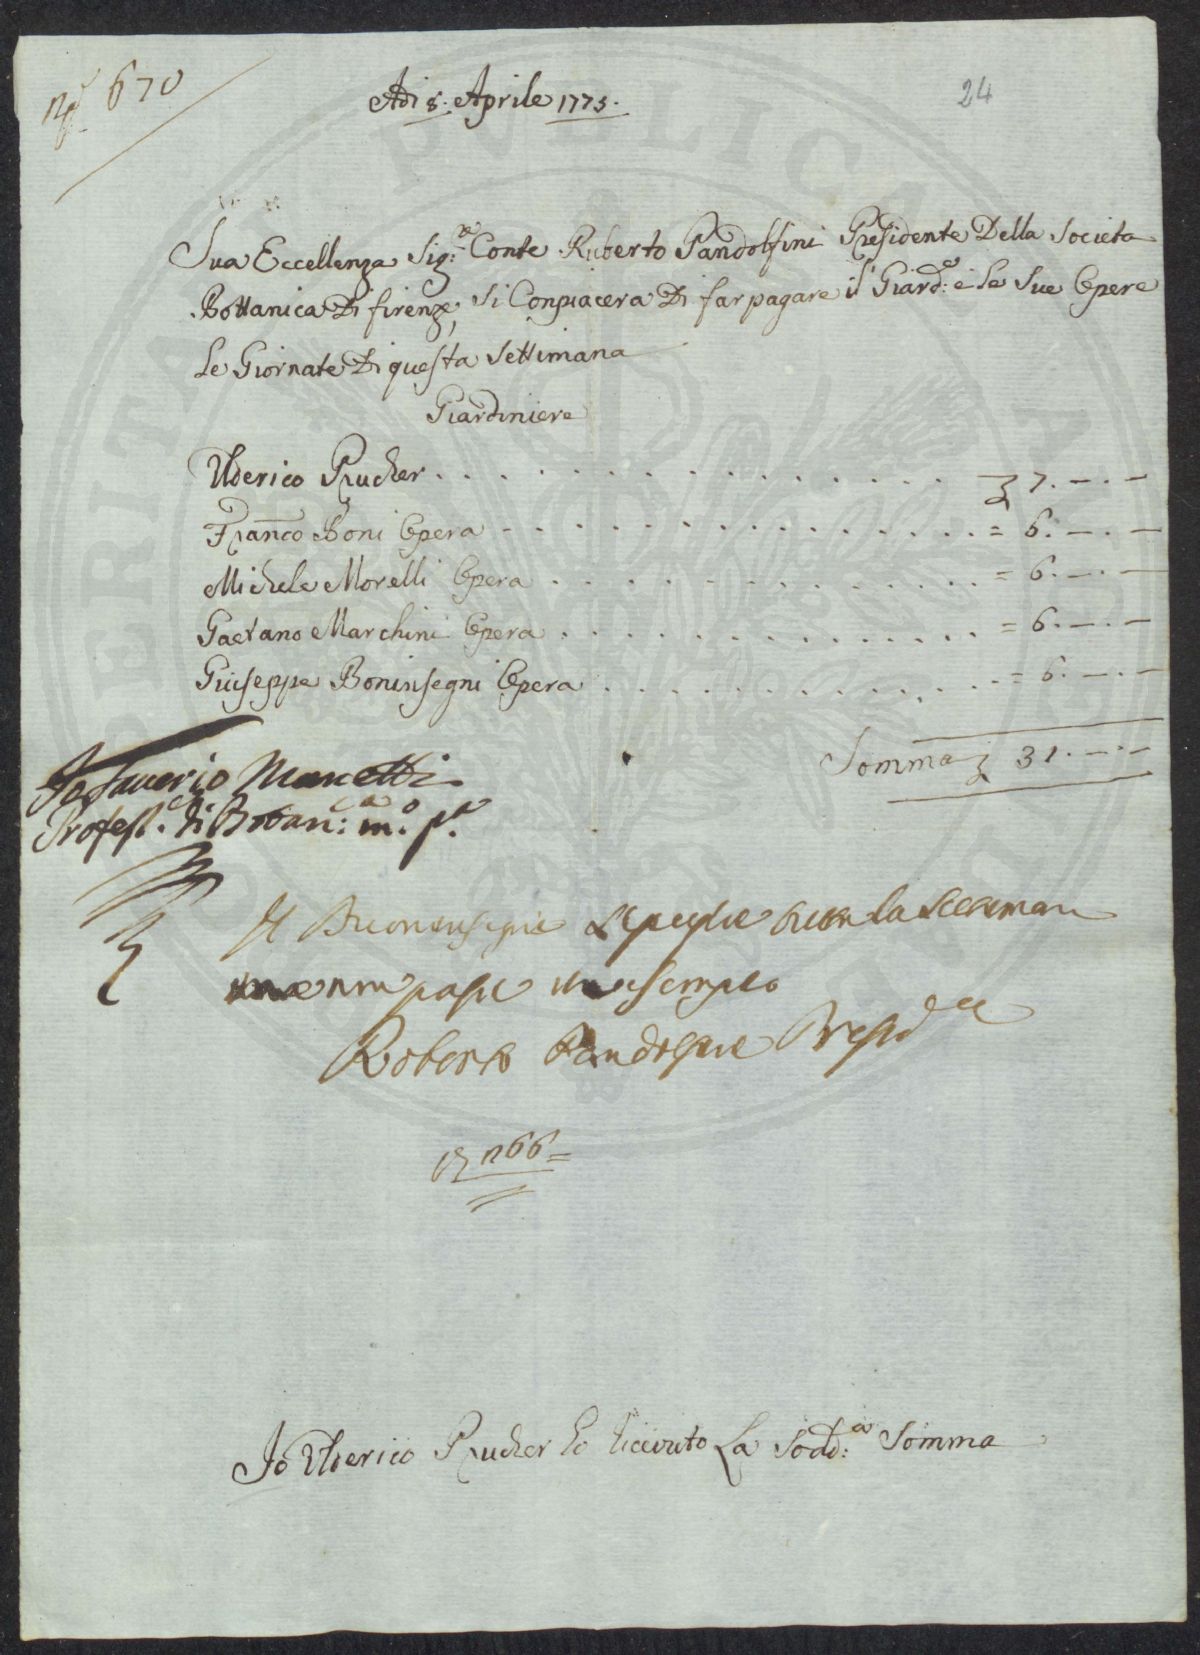 N.º 670
Adi 8. Aprile 1775.
24
Sua Eccellenza Sig:re Conte Ruberto Pandolfini Presidente Della Societa
Bottanica Di firenze, si Conpiacera Di far pagare il Giard:e e le Sue Opere
Le Giornate Di questa Settimana
Giardiniere
Ulderico Prucher . . . . . . . . . . . . . . . . £ 7. — . —
Fran.co Boni Opera - . . . . . . . . . . . . . . = 6. — . —
Michele Morelli Opera . . . . . . . . . . . . . = 6. — . —
Gaetano Marchini Opera . . . . . . . . . . . . . = 6. — . —
Giuseppe Boninsegni Opera . . . . . . . . . . . . = 6. — . —
Somma £ 31. — . —
Io Saverio Manetti
Profess.e di Botan:ca m.o p.a
Il Buoninsegni
Roberto Pandolfini Presid.te
n 66 =
Io Ulderico Prucher ho ricevuto La Sodd:a Somma